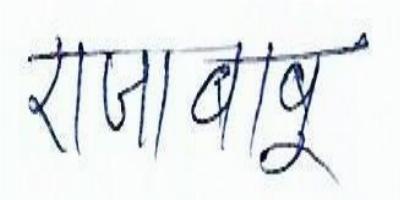 राजाबाबू